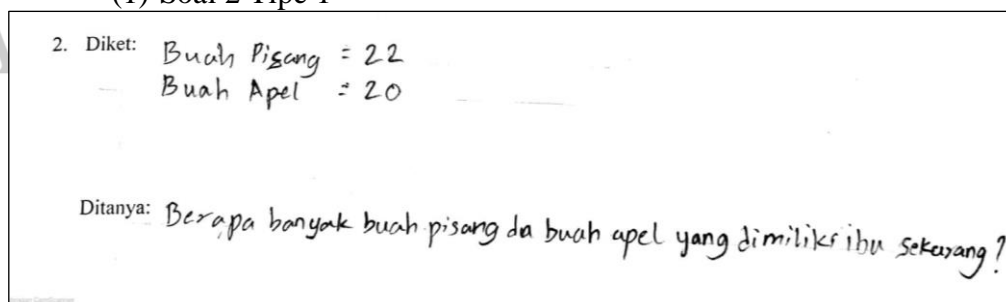 (1) Soal 2 Tipe 1
2. Diket: Buah Pisang = 22
Buah Apel = 20
Ditanya: Berapa banyak buah pisang da buah apel yang dimiliki ibu sekarang?